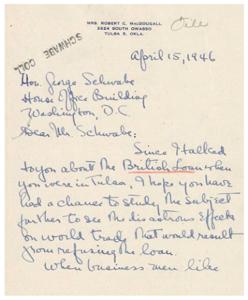 MRS. ROBERT C. MACDOUGALL
2524 SOUTH OWASSO
TULSA 5, OKLA.
Okla
SCHWABE
COLL
April 15, 1946
Hon. George Schwabe
House Office Building
Washington, D.C
Dear Mr. Schwabe:
Since I talked
to you about the British Loan when
you were in Tulsa, I hope you have
had a chance to study the subject
further to see the disastrous effects
on world trade that would result
from refusing the loan.
When business men like